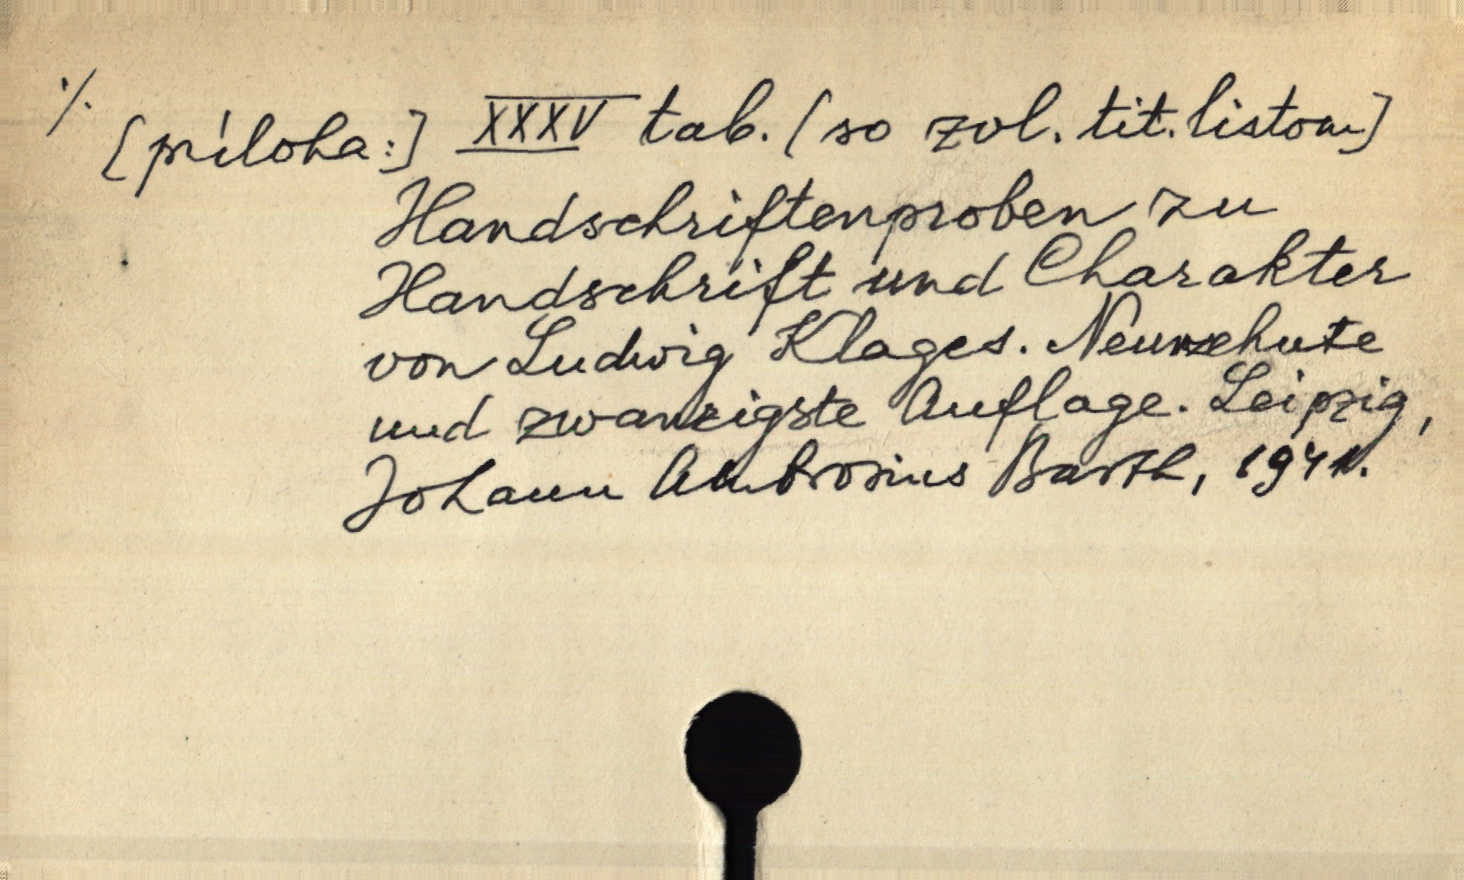 ./.
[príloha:] XXXV tab. (so zvl. tit. listom)
Handschriftenproben zu
Handschrift und Charakter
von Ludwig Klages. Neunzehnte
und zwanzigste Auflage. Leipzig,
Johann Ambrosius Barth, 1941.